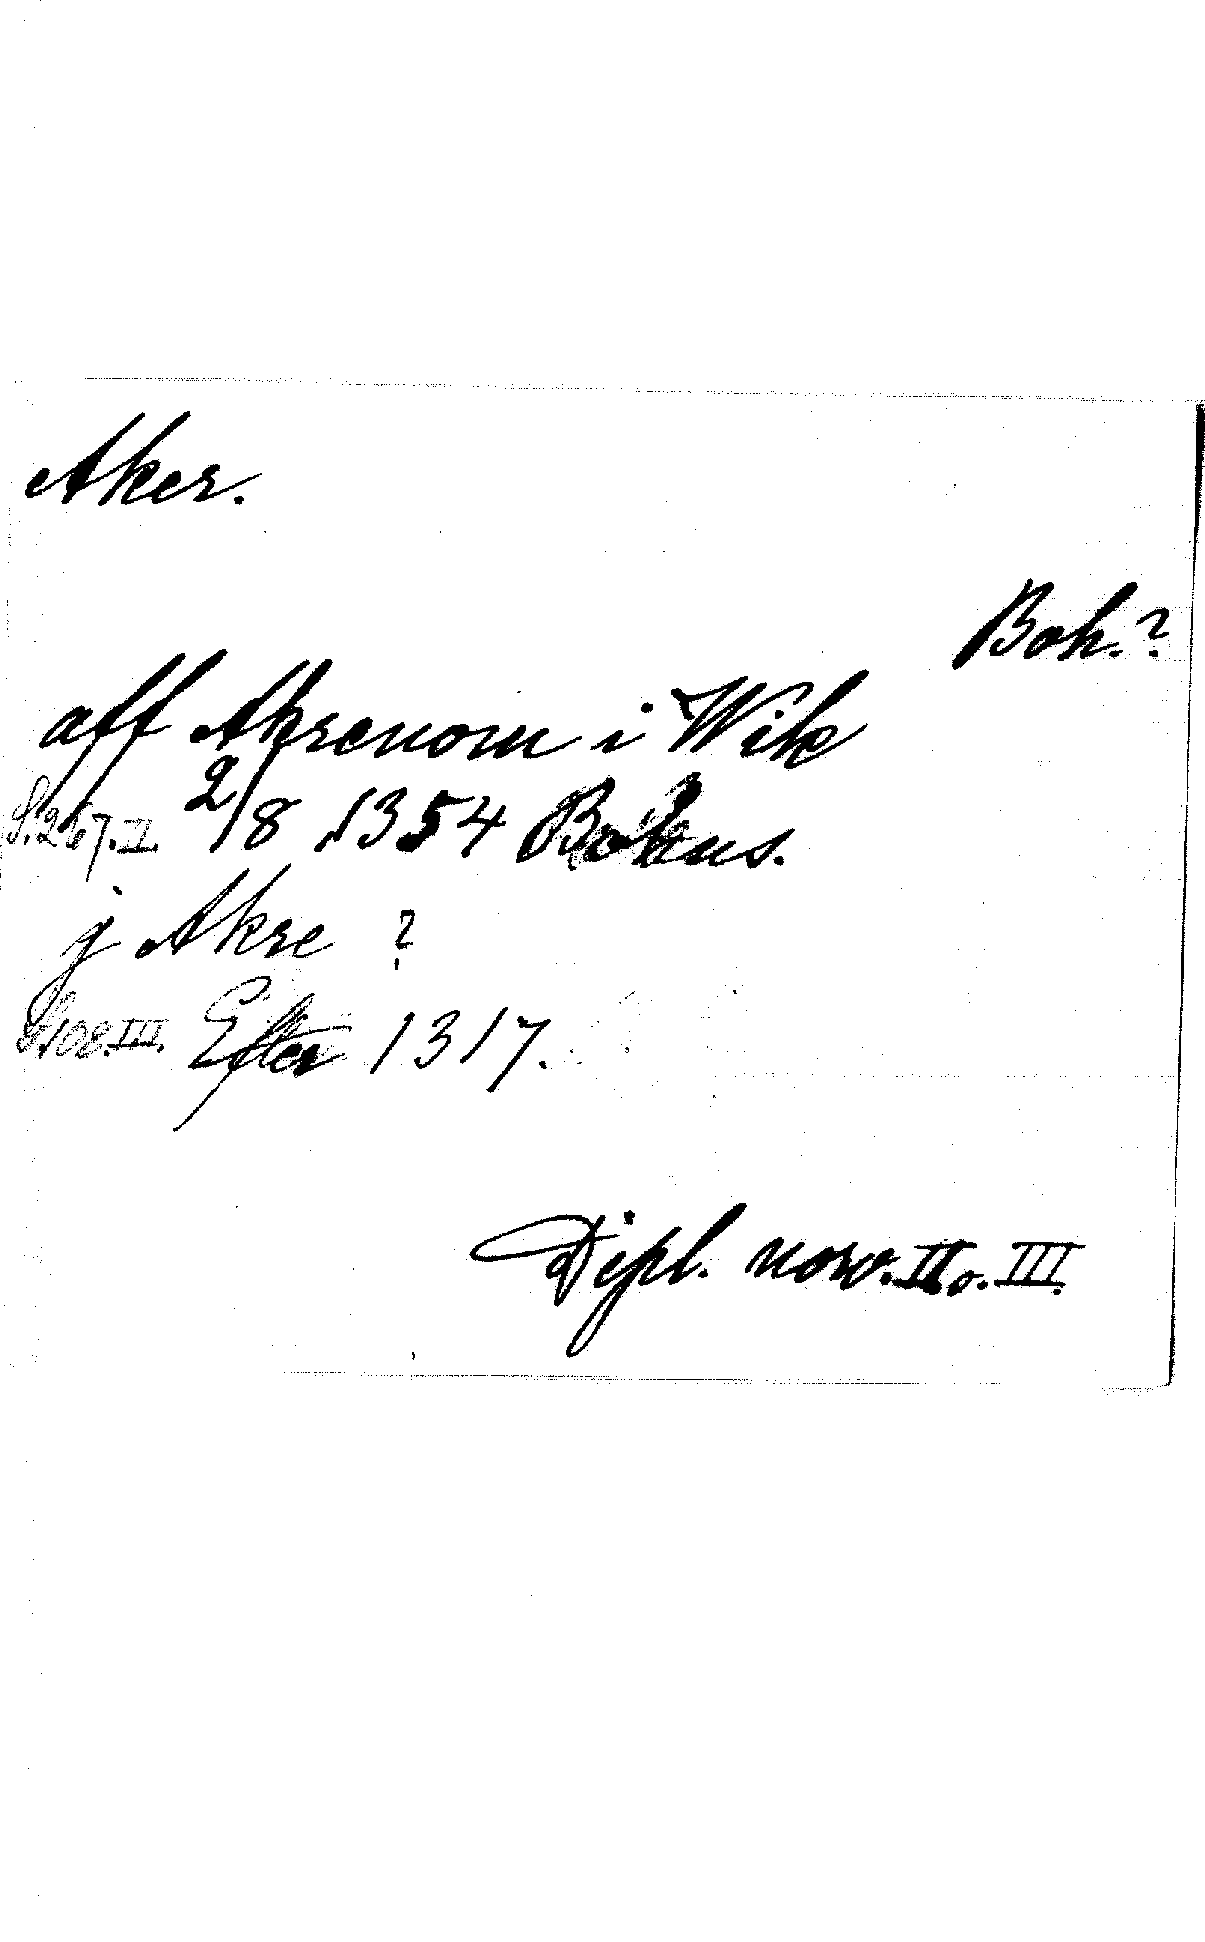 Aker.
Boh.?
aff Akrenom i Wik
S.267.II. 2/8 1354 Bohus.
j Akre ?
S.108.III. Efter 1317.
Dipl. norv. II o. III.